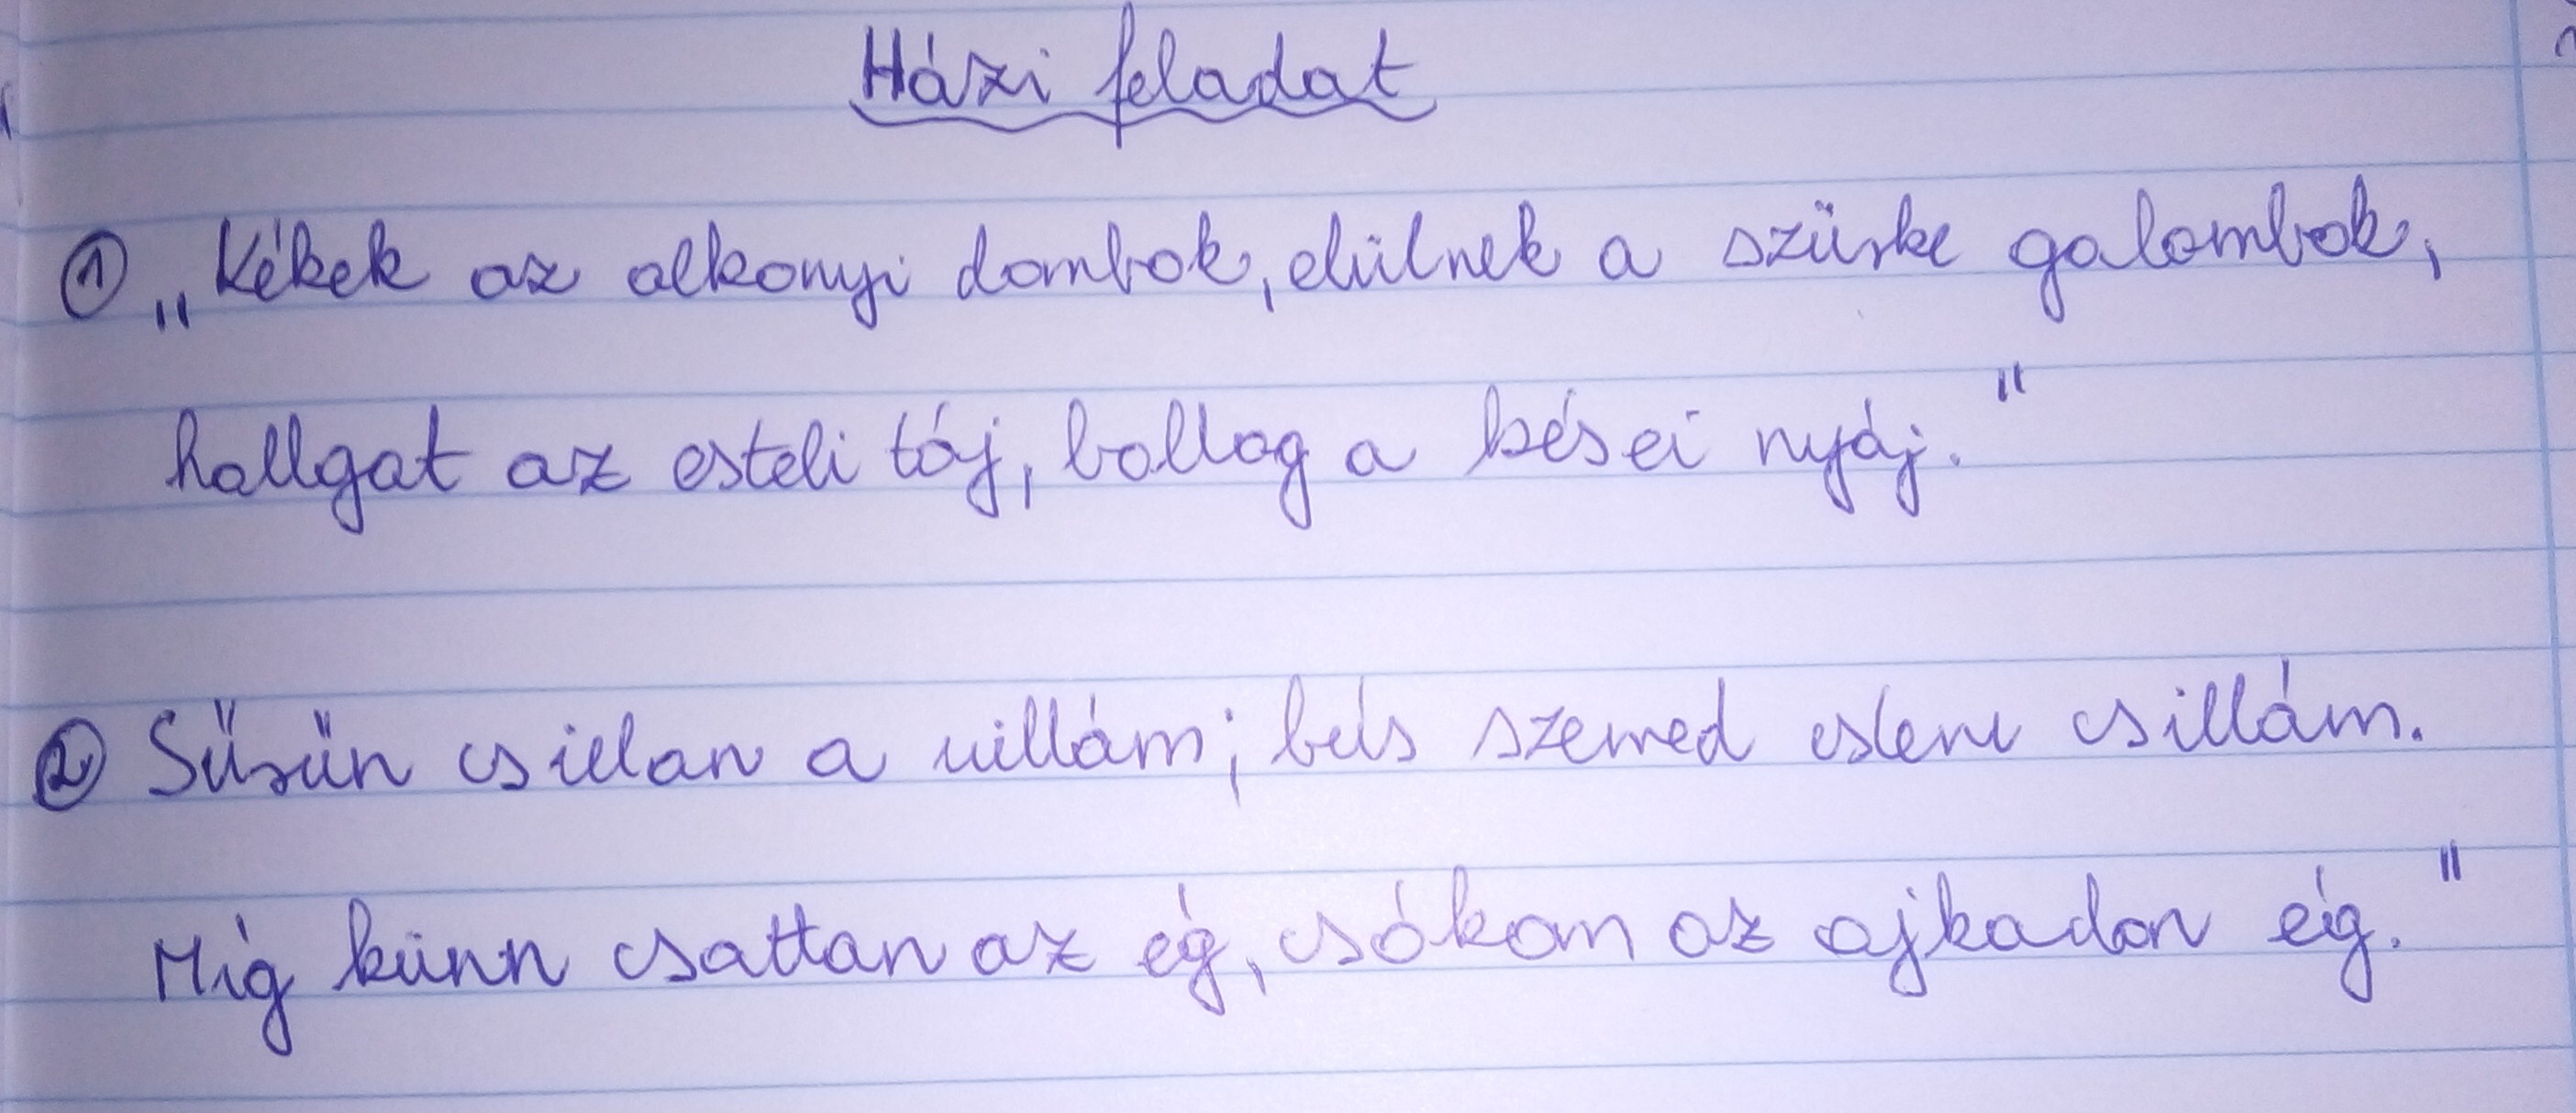 Házi feladat
① „Kékek az alkonyi dombok, elülnek a szürke galambok,
hallgat az esteli táj, ballag a kései nyáj."
② Sűrűn csillan a villám; kék szemed esteni csillám.
Míg künn csattan az ég, csókom az ajkadon ég."